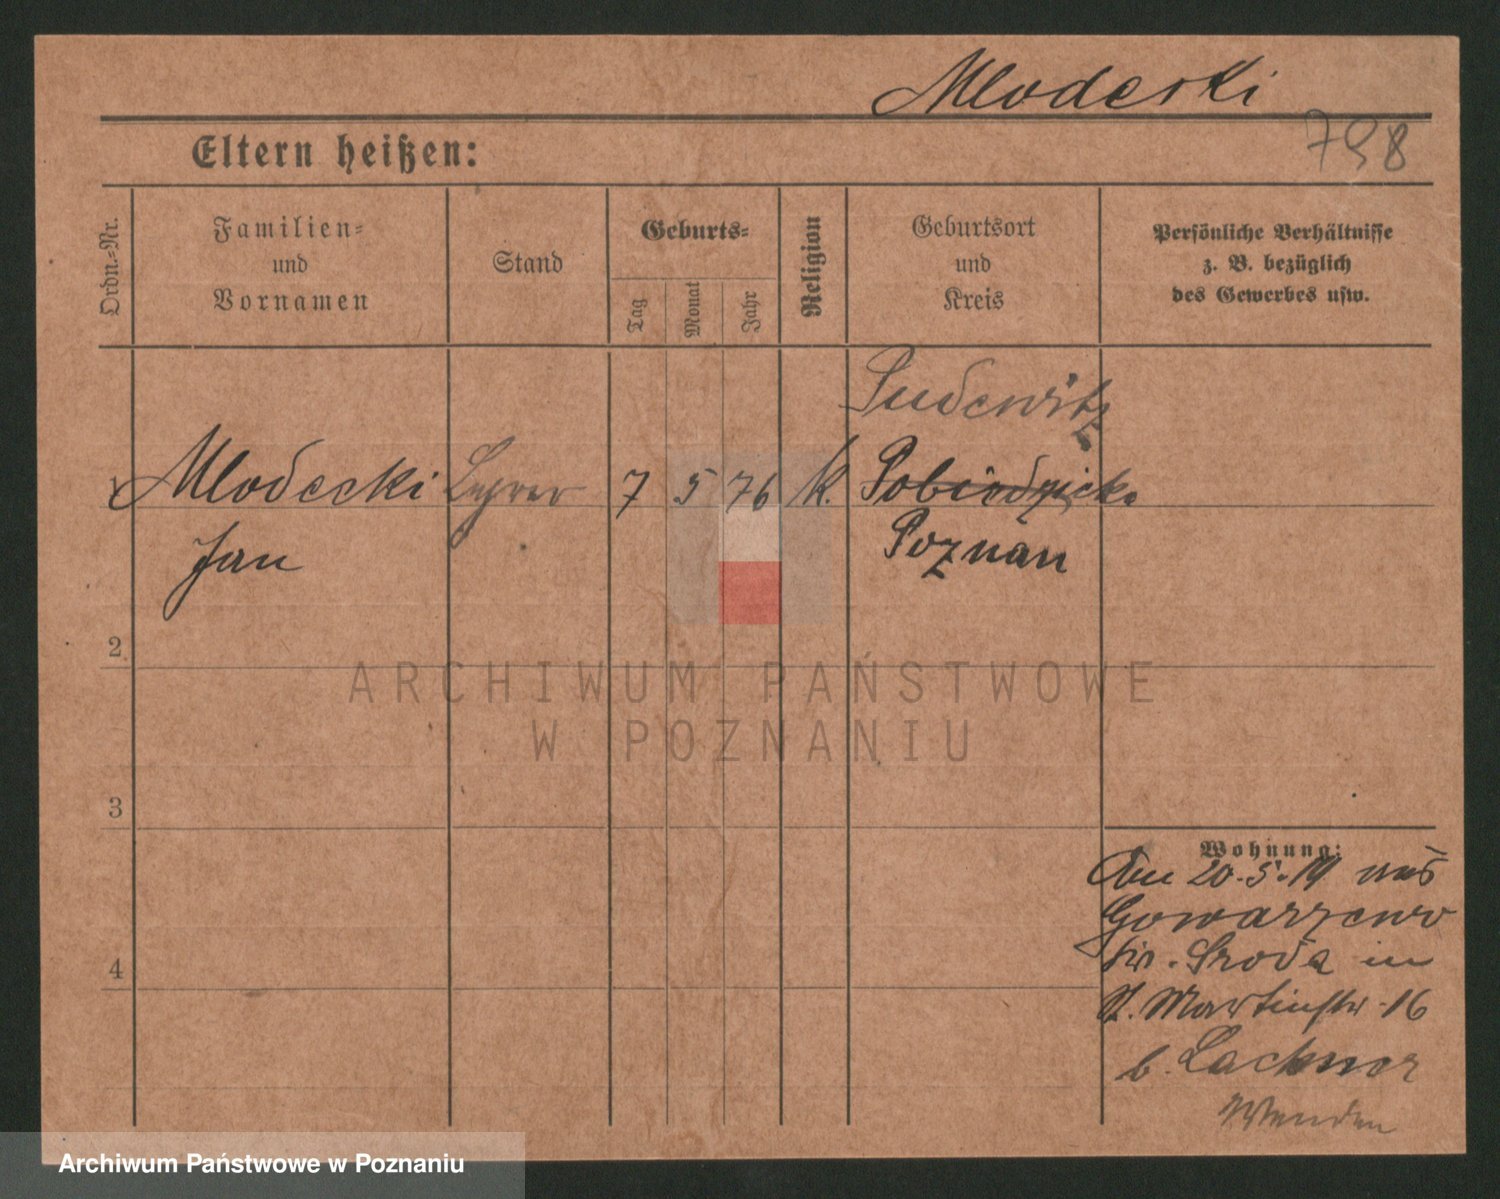 Mlodecki
798
Eltern heißen:
Ordn.-Nr.
Familien-
und
Vornamen
Stand
Geburts-
Tag
Monat
Jahr
Religion
Geburtsort
und
Kreis
Persönliche Verhältnisse
z. B. bezüglich
des Gewerbes usw.
Pudewitz
1 Mlodecki Lehrer 7 5 76 k.
Jan
Poznań
2
3
4
Wohnung:
Am 20.5.19 aus
Gowarzewo
Kr. Sroda in
St. Martinstr. 16
b. Lackner
Wenden
ARCHIWUM PAŃSTWOWE
W POZNANIU
Archiwum Państwowe w Poznaniu